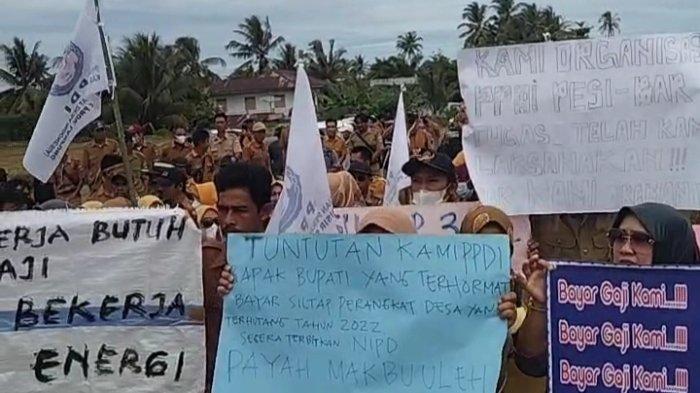 KERJA BUTUH
GAJI
BEKERJA
ENERGI
PPDI
TUNTUTAN KAMI PPDI
BAPAK BUPATI YANG TERHORMAT
BAYAR SILTAP PERANGKAT DESA YANG
TERHUTANG TAHUN 2022
SEGERA TERBITKAN NIPD
PAYAH MAKBUULEH
KAMI ORGANISASI
PPDI PESI-BAR
TUGAS TELAH KAMI
LAKSANAKAN!!!
KAMI
Bayar Gaji Kami...!!!!
Bayar Gaji Kami...!!!!
Bayar Gaji Kami...!!!!